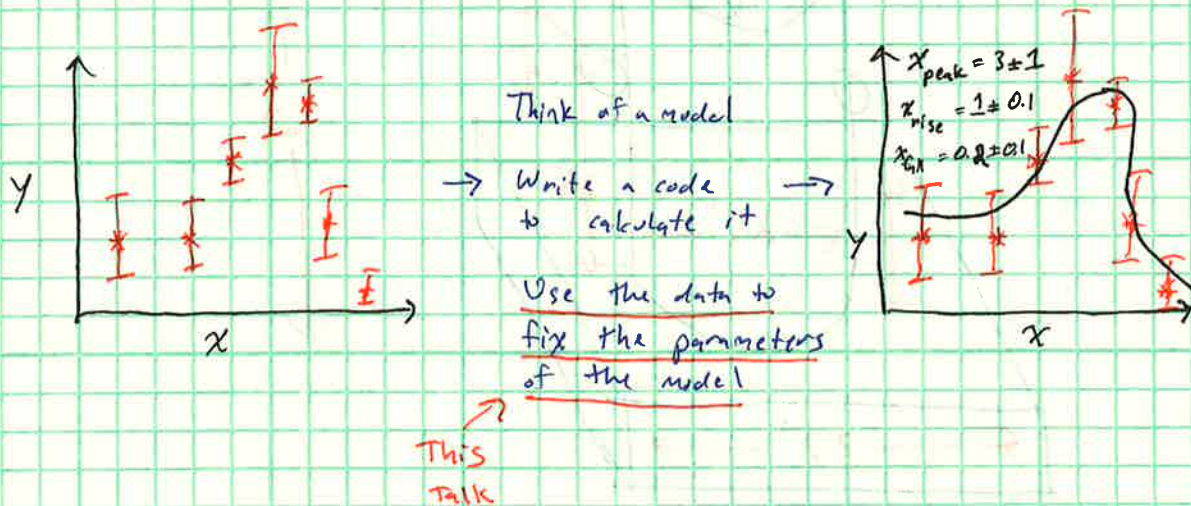 Y
x
Think of a model
→ Write a code →
to calculate it
Use the data to
fix the parameters
of the model
This
Talk
x peak = 3±1
x rise = 1±0.1
= 0.2±0.1
Y
x